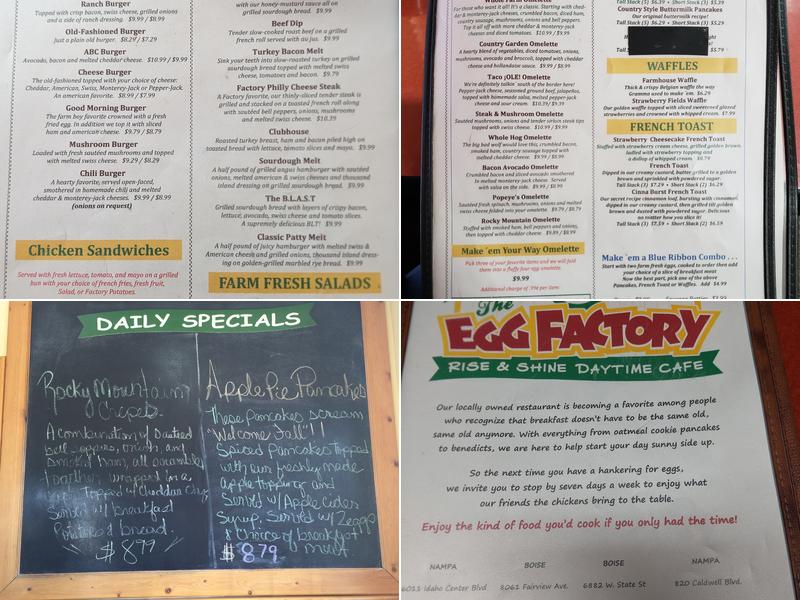 Ranch Burger
Topped with crisp bacon, swiss cheese, grilled onions
and a side of ranch dressing. $9.99 / $8.99
Old-Fashioned Burger
Just a plain old burger. $8.29 / $7.29
ABC Burger
Avocado, bacon and melted cheddar cheese. $10.99 / $9.99
Cheese Burger
The old-fashioned topped with your choice of cheese:
Cheddar, American, Swiss, Monterey-Jack or Pepper-Jack.
An american favorite. $8.99 / $7.99
Good Morning Burger
The farm boy favorite crowned with a fresh
fried egg. In addition we top it with sliced
ham and american cheese. $9.79 / $8.79
Mushroom Burger
Loaded with fresh sautéed mushrooms and topped
with melted swiss cheese. $9.29 / $8.29
Chili Burger
A hearty favorite, served open-faced,
smothered in homemade chili and melted
cheddar & monterey-jack cheeses. $9.99 / $8.99
(onions on request)
Chicken Sandwiches
Served with fresh lettuce, tomato, and mayo on a grilled
bun with your choice of french fries, fresh fruit,
Salad, or Factory Potatoes.
with our honey-mustard sauce all on
grilled sourdough bread. $9.99
Beef Dip
Tender slow-cooked roast beef on a grilled
french roll served with au jus. $9.99
Turkey Bacon Melt
Sink your teeth into slow-roasted turkey on grilled
sourdough bread topped with melted swiss
cheese, tomatoes and bacon. $9.79
Factory Philly Cheese Steak
A Factory favorite, our thinly-sliced tender steak is
grilled and stacked on a toasted french roll along
with sautéed bell peppers, onions, mushrooms
and melted swiss cheese. $10.39
Clubhouse
Roasted turkey breast, ham and bacon piled high on
toasted bread with lettuce, tomato slices and mayo. $9.99
Sourdough Melt
A half pound of grilled angus hamburger with sautéed
onions, melted american & swiss cheeses and thousand
island dressing on grilled sourdough bread. $9.99
The B.L.A.S.T
Grilled sourdough bread with layers of crispy bacon,
lettuce, avocado, swiss cheese and tomato slices.
A supremely delicious BLT! $9.99
Classic Patty Melt
A half pound of juicy hamburger with melted swiss &
American cheese and grilled onions, thousand island dress-
ing on golden-grilled marbled rye bread. $9.99
FARM FRESH SALADS
For those who want it all it's a classic. Starting with ched-
dar & monterey-jack cheeses, diced tomatoes, bacon, ham,
country sausage, mushrooms, onions and bell peppers.
Top it all off with more cheddar & monterey-jack
cheeses and diced tomatoes. $10.99 / $9.99
Country Garden Omelette
A hearty blend of vegetables, diced tomatoes, onions,
mushrooms, avocado and broccoli, topped with cheddar
cheese and hollandaise sauce. $9.99 / $8.99
Taco ¡OLE! Omelette
We're definitely talkin' south of the border here!
Pepper-jack cheese, seasoned ground beef, jalapeños,
topped with homemade salsa, melted pepper-jack
cheese and sour cream. $10.39 / $9.39
Steak & Mushroom Omelette
Sautéed mushrooms, onions and tender sirloin steak tips
topped with swiss cheese. $10.99 / $9.99
Whole Hog Omelette
The big bad wolf would love this, crumbled bacon,
smoked ham, country sausage topped with
melted cheddar cheese. $9.99 / $8.99
Bacon Avocado Omelette
Crumbled bacon and sliced avocados smothered
in melted monterey-jack cheese. Served
with salsa on the side. $9.99 / $8.99
Popeye's Omelette
Sautéed fresh spinach, mushrooms, onions and melted
swiss cheese folded into your omelette. $9.79 / $8.79
Rocky Mountain Omelette
Stuffed with smoked ham, bell peppers and onions,
then topped with cheddar cheese. $9.89 / $8.89
Make 'em Your Way Omelette
Pick three of your favorite items and we will fold
them into a fluffy four egg omelette.
$9.99
Additional charge of .99¢ per item
Tall Stack (5) $6.39 • Short Stack (3) $5.39
Country Style Buttermilk Pancakes
Our original buttermilk recipe!
Tall Stack (5) $6.25 • Short Stack (3) $5.25
$5.79
WAFFLES
Farmhouse Waffle
Thick & crispy Belgian waffle the way
Gramma used to make 'em $6.29
Strawberry Fields Waffle
Our golden waffle topped with sliced sweetened glazed
strawberries and crowned with whipped cream. $7.99
FRENCH TOAST
Strawberry Cheesecake French Toast
Stuffed with strawberry cream cheese, grilled golden brown,
ladled with strawberry topping and
a dollop of whipped cream $8.79
French Toast
Dipped in our creamy custard, butter grilled to a golden
brown and sprinkled with powdered sugar.
Tall Stack (3) $7.29 • Short Stack (2) $6.29
Cinna Burst French Toast
Our secret recipe cinnamon loaf, bursting with cinnamon,
dipped in our creamy custard, then grilled till golden
brown and dusted with powdered sugar. Delicious
no matter how you slice it!
Tall Stack (3) $7.59 • Short Stack (2) $6.59
Make 'em a Blue Ribbon Combo . . .
Start with two farm fresh eggs, cooked to order then add
your choice of a slice of breakfast meat
Now the best part, pick one of the above
Pancakes, French Toast or Waffles. Add $4.99
DAILY SPECIALS
Rocky Mountain
Crepes
A combination of Sauteed
bell peppers, onion, and
smoked ham, all scrambled
together, wrapped in a
crepe Topped w/ Cheddar Chz,
Served w/ breakfast
Potatoes & bread.
$8.79
Apple Pie Pancakes
These pancakes scream
"Welcome Fall"!!
Spiced Pancakes topped
with our freshly made
apple topping and
Served w/ Apple Cider
Syrup. Served w/ 2 eggs
& choice of breakfast
meat.
$8.79
The
EGG FACTORY
RISE & SHINE DAYTIME CAFE
Our locally owned restaurant is becoming a favorite among people
who recognize that breakfast doesn't have to be the same old,
same old anymore. With everything from oatmeal cookie pancakes
to benedicts, we are here to help start your day sunny side up.
So the next time you have a hankering for eggs,
we invite you to stop by seven days a week to enjoy what
our friends the chickens bring to the table.
Enjoy the kind of food you'd cook if you only had the time!
NAMPA BOISE BOISE NAMPA
6011 Idaho Center Blvd 8061 Fairview Ave. 6882 W. State St 820 Caldwell Blvd.